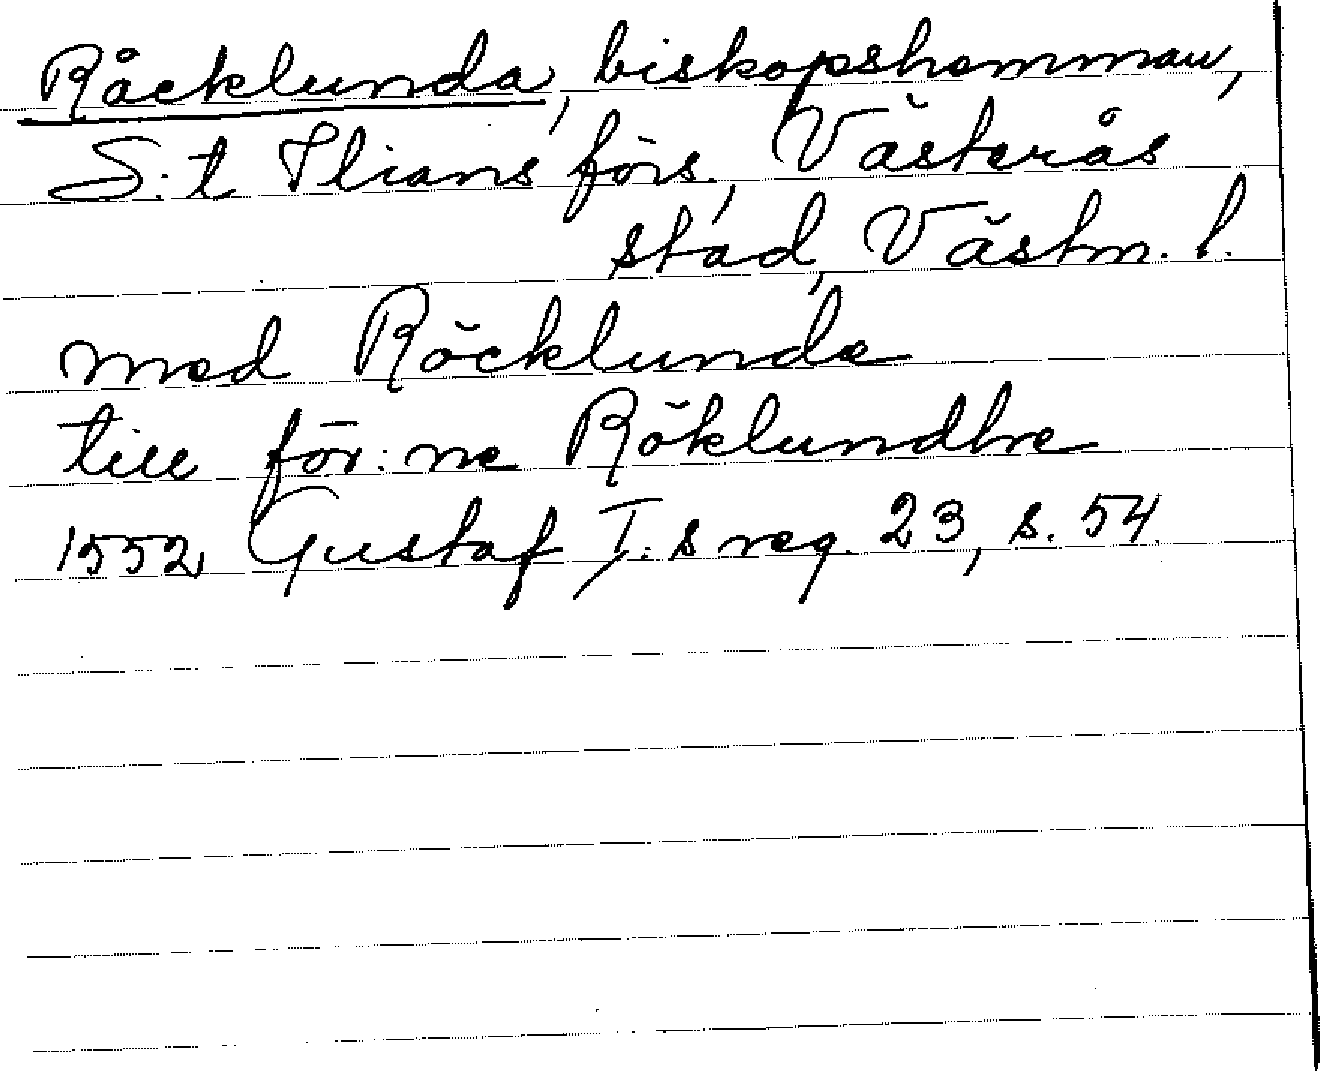 Råcklunda, biskopshemman,
S:t Ilians förs., Västerås
stad, Västm. l.
med Röcklunda
till för:ne Röklundhe
1552, Gustaf I:s reg. 23, s. 54.